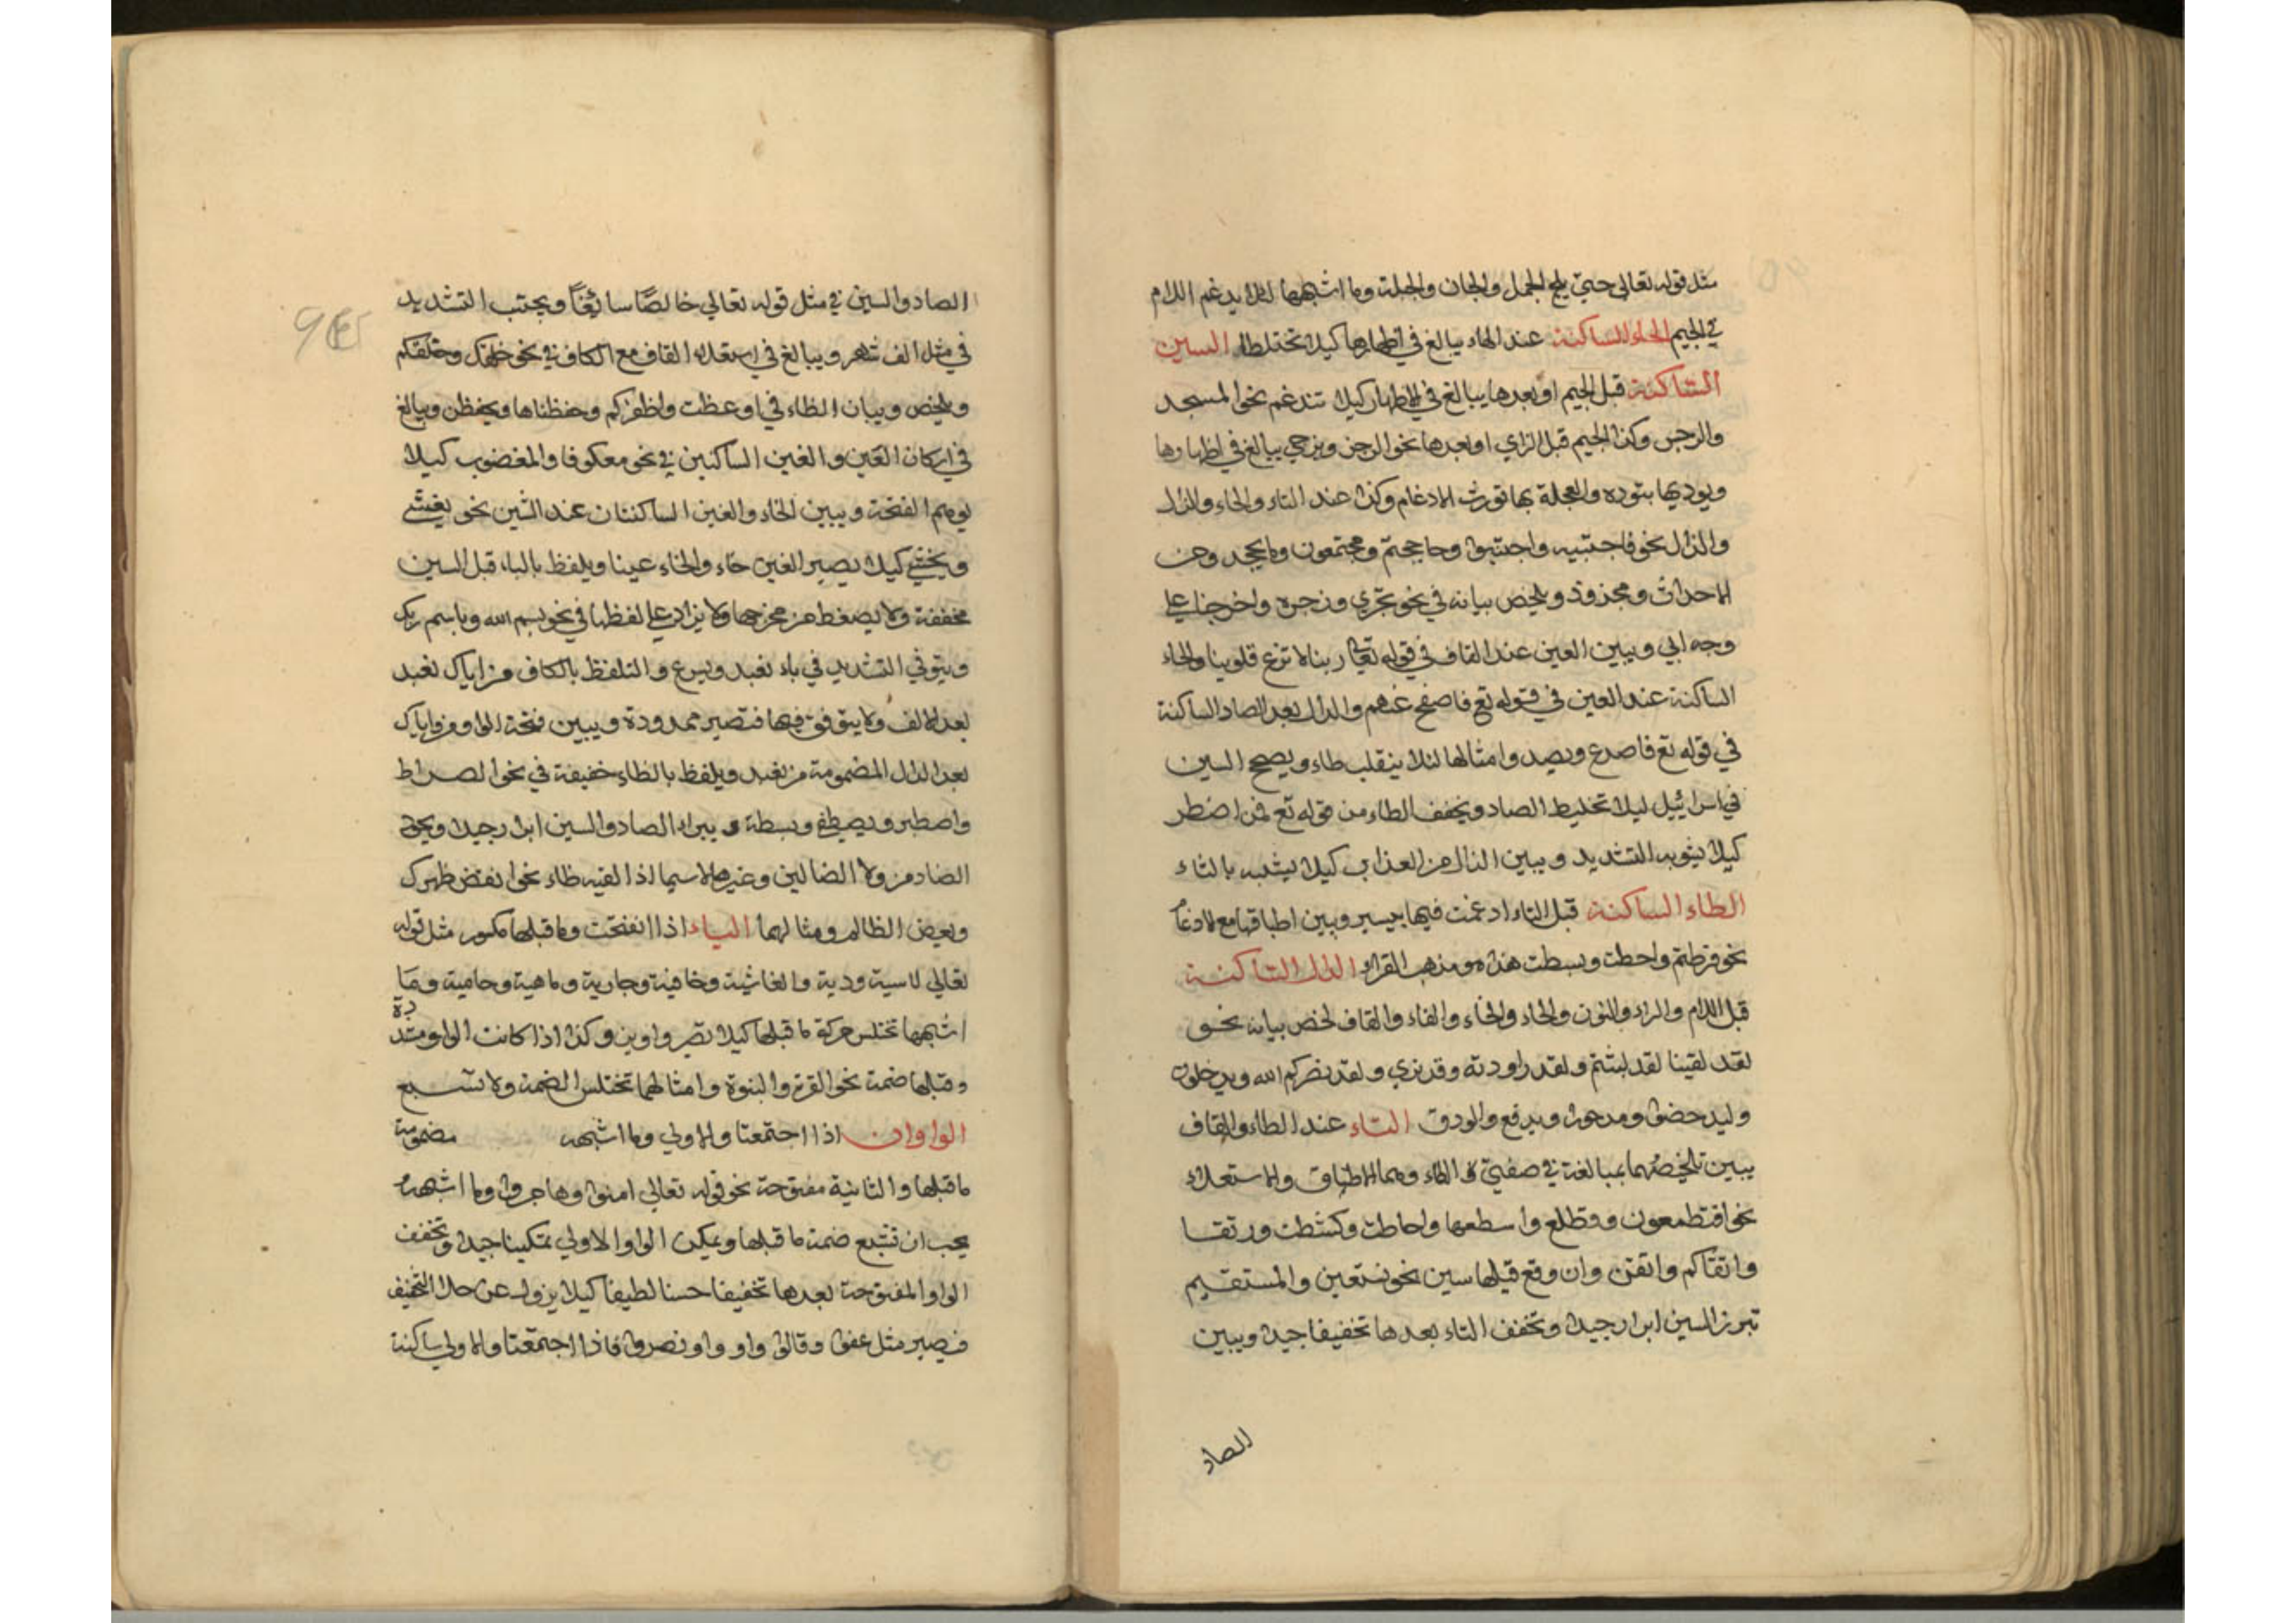 مثل قوله تعالى حتي يلج الجمل والجان والجبلة وما اشبهها لئلا يدغم اللام
في الجيم الحاء الساكنة عند الهاء يبالغ في اظهارها كيلا تختلطا السين
الساكنة قبل الجيم او بعدها يبالغ في الاظهار كيلا تندغم نحو المسجد
والرجس وكذا الجيم قبل الزاي او بعدها نحو الرجز ويزجي يبالغ في اظهارها
ويوديها بتوده والعجلة بها تورث الادغام وكذا عند التاء والحاء والدال
والذال نحو فاجتبيه واجتنبوا وحاججتم ومجتمعون وما يجحد ومن
الاجداث ومجذوذ ويلخص بيانه في نحو تجري وزجرة واخرجنا علي
وجه ابي ويبين الغين عند القاف في قوله تعالى ربنا لا تزغ قلوبنا والحاء
الساكنة عند العين في قوله تع فاصفح عنهم والدال بعد الصاد الساكنة
في قوله تع فاصدع ويصد وامثالها لئلا ينقلب طاء ويصحح السين
في اسرائيل ليلا تخليط الصاد ويخفف الطاء من قوله تع فمن اضطر
كيلا يثوبه التشديد ويبين الذال من العذاب كيلا يشبه بالثاء
الطاء الساكنة قبل التاء ادغمت فيها بيسير ويبين اطباقها مع الادغام
نحو فرطتم واحطت وبسطت هذا هو مذهب القراء الدال الساكنة
قبل اللام والراء والنون والحاء والخاء والفاء والقاف لخص بيانه نحو
لقد لقينا لقد لبثتم ولقد راودته وقد نري ولقد نصركم الله ويدخلون
وليدحضوا ومدحورا ويدفع والودق التاء عند الطاء والقاف
يبين تلخيصهما بمبالغة في صفتي الطاء وهما الاطباق والاستعلاء
نحو افتطمعون وتطلع واسطعها واحاطت وكشطت ورتقا
واتقاكم واتقن وان وقع قبلها سين نحو نستعين والمستقيم
تبرز السين ابرازا جيدا وتخفف التاء بعدها تخفيفا جيدا ويبين
الصاد
الصاد والسين في مثل قوله تعالي خالصًا سائغًا ويجتنب التشديد
في مثل الف شهر ويبالغ في استعلاء القاف مع الكاف في نحو خلقك وخلقكم
ويلخص ويبان الظاء في اوعظت واظفركم وحفظناها ويحفظن ويبالغ
في اركان العين والغين الساكنين في نحو معكوفا والمغضوب كيلا
يوهم الفتحة ويبين الخاء والغين الساكنتان عند الشين نحو يغشي
ويخشي كيلا يصير الغين خاء والخاء غينا ويلفظ بالباء قبل السين
مخففة ولا يضغط من مخرجها ولا يزاد علي لفظها في نحو بسم الله وباسم ربك
ويتوقي التشديد في باء نعبد ويسرع والتلفظ بالكاف من اياك نعبد
بعد الالف ولا يتوقف فيها فتصير ممدودة ويبين فتحة الواو من واياك
بعد الدال المضمومة من نعبد ويلفظ بالطاء خفيفة في نحو الصراط
واصطبر ويصطفي وبسطة و يبراد الصاد والسين ابرازا جيدا ويجوّد
الضاد من ولا الضالين وغيرها لاسيما اذا لقيه ظاء نحو انقض ظهرك
وبعض الظالم ومثالهما الياء اذا انفتحت وما قبلها مكسور مثل قوله
تعالي لاسية ودية والغاشية وخافية وجارية وماهية وحامية وما
اشبهها تختلس حركة ما قبلها كيلا تصير واوين وكذا اذا كانت الواو مشددة
وقبلها ضمة نحو القوة والنبوة وامثالهما تختلس الضمة ولا تشبع
الواوان اذا اجتمعتا والاولي وما اشبهه مضمومة
ما قبلها والثانية مفتوحة نحو قوله تعالي امنوا وهاجروا وما اشبهه
يجب ان تتبع ضمة ما قبلها ويمكن الواو الاولي تمكينا جيدا وتخفف
الواو المفتوحة بعدها تخفيفا حسنا لطيفا كيلا يزول عن حد التخفيف
فيصير مثل عفوا وقالوا واو واو نصروا فاذا اجتمعتا والاولي ساكنة